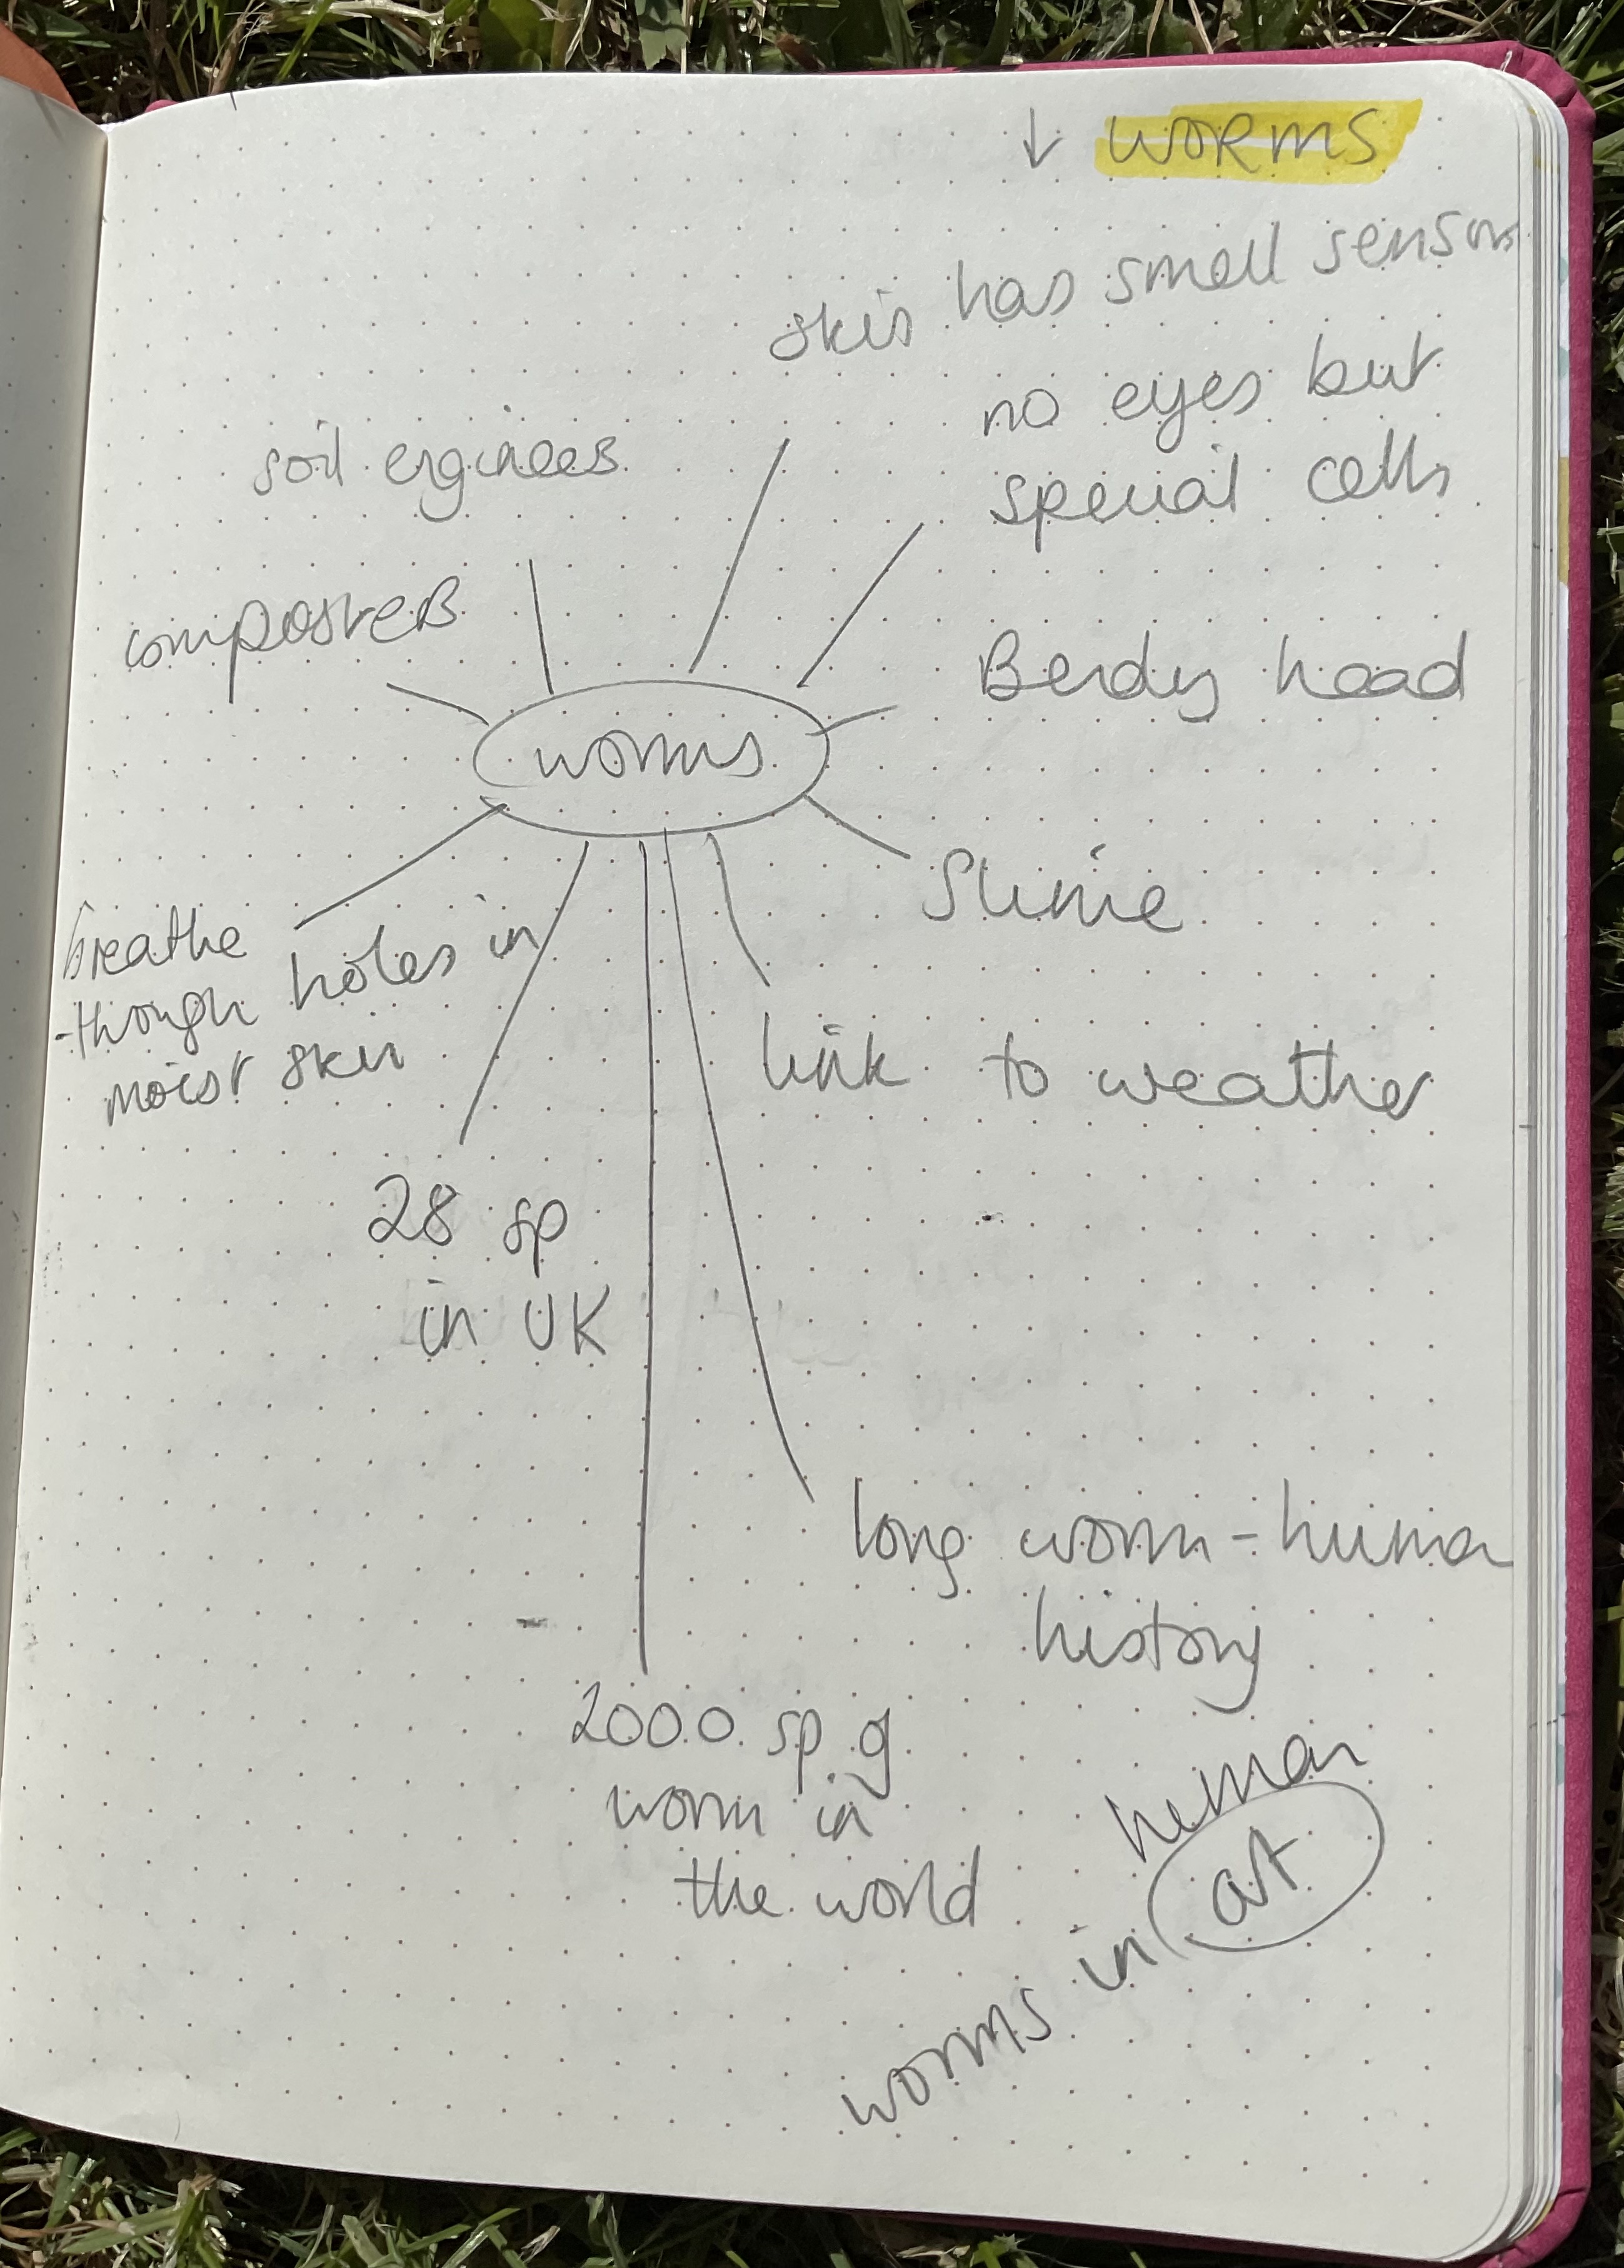 ↓ WORMS
skin has smell sensors
no eyes but
special cells
soil engineers
composters
Bendy head
worms
Slime
breathe
through holes in
moist skin
link to weather
28 sp
in UK
long worm-human
history
2000 sp of
worm in
the world
human
worms in art